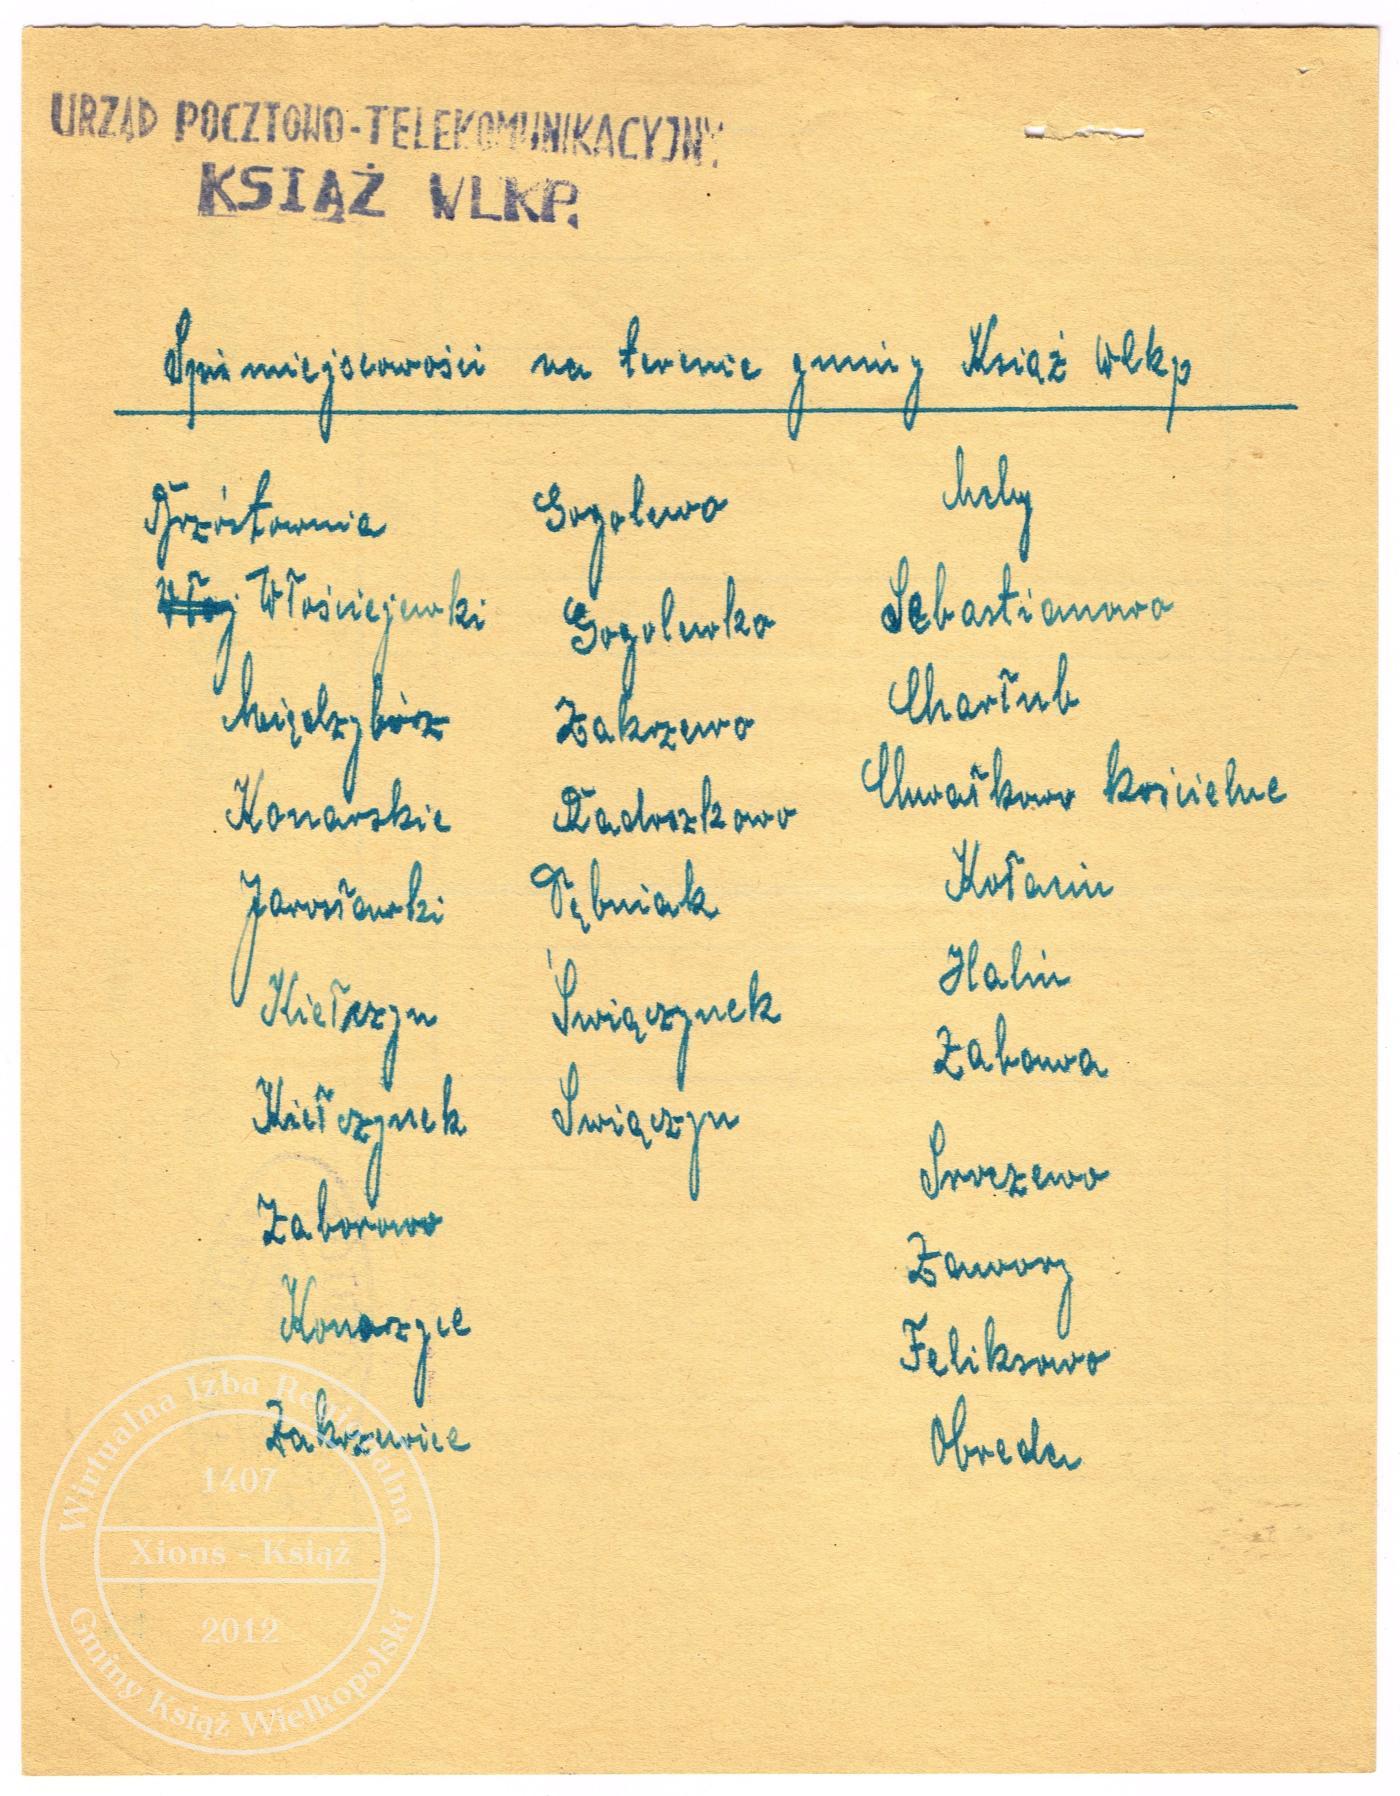 URZĄD POCZTOWO-TELEKOMUNIKACYJNY
KSIĄŻ WLKP.
Spis miejscowości na terenie gminy Książ Wlkp
Brzóstownia
Włościejewki
Międzybórz
Konarskie
Jarosławki
Kiełczyn
Kiełczynek
Zaborowo
Konarzyce
Zakrzewice
Gogolewo
Gogolewko
Zakrzewo
Radoszkowo
Dębniak
Świączynek
Świączyn
Mchy
Sebastianowo
Charłub
Chwałkowo kościelne
Kołacin
Halin
Łabowa
Sroczewo
Zawory
Feliksowo
Obreda
Wirtualna Izba Regionalna
1407
Xions - Książ
2012
Gminy Książ Wielkopolski